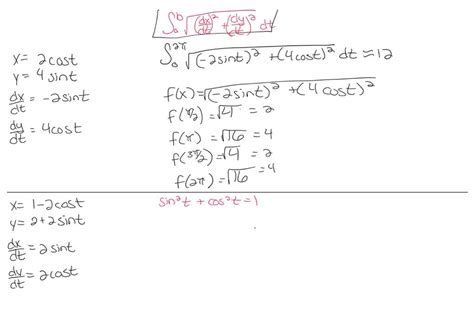 ∫₀ᵇ √((dx/dt)² + (dy/dt)²) dt
x = 2cost
y = 4sint
dx/dt = -2sint
dy/dt = 4cost
∫₀^2π √((-2sint)² + (4cost)²) dt ≈ 12
f(x) = √((-2sint)² + (4cost)²)
f(π/2) = √4 = 2
f(π) = √16 = 4
f(3π/2) = √4 = 2
f(2π) = √16 = 4
x = 1-2cost
y = 2+2sint
dx/dt = 2sint
dy/dt = 2cost
sin²t + cos²t = 1